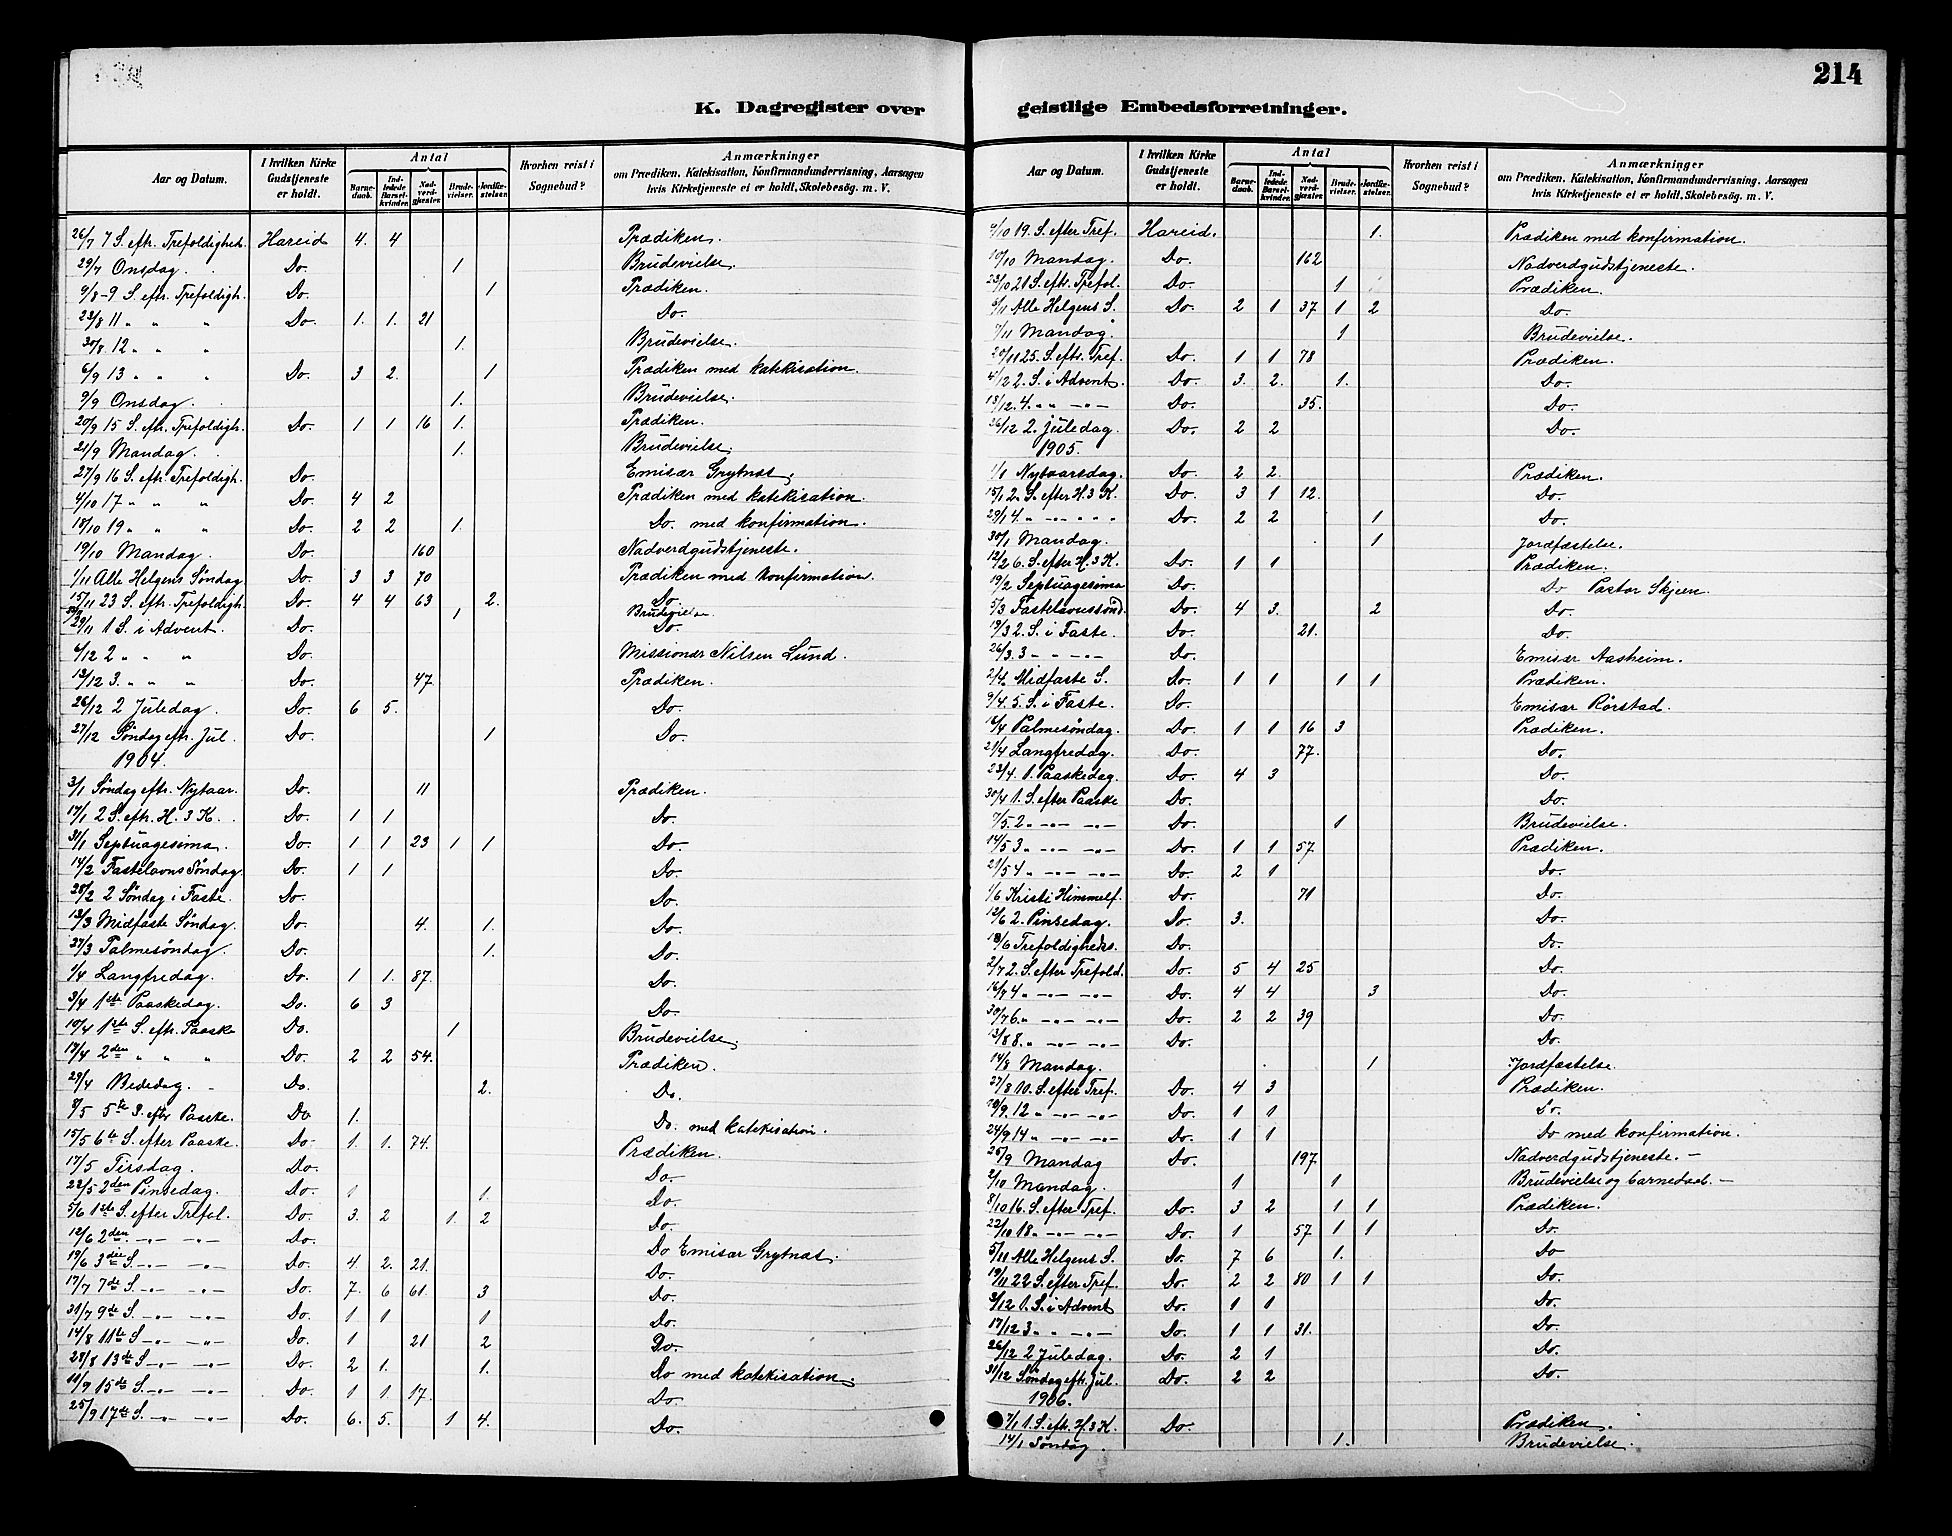 214
K. Dagregister over geistlige Embedsforretninger.
Aar og Datum. I hvilken Kirke Gudstjeneste er holdt. Antal Barnedaab. Indledede Barselkvinder. Nadverdgjester. Brudevielser. Jordfæstelser. Hvorhen reist i Sognebud? Anmærkninger om Prædiken, Katekisation, Konfirmandundervisning, Aarsagen hvis Kirketjeneste ei er holdt, Skolebesög. m. V.
26/7 7 S. eftr. Trefoldighed. Hareid 4. 4 Prædiken.
29/7 Onsdag. Do. 1 Brudevielse.
9/8 - 9 S. eftr. Trefoldigh. Do. 1 Prædiken.
23/8 11 " " " Do. 1. 1. 21 Do.
30/8. 12 " " " 1. Brudevielse.
6/9 13 " " " Do. 3 2. 1 Prædiken med katekisation.
9/9 Onsdag. 1. Brudevielse.
20/9 15 S. eftr. Trefoldigh. Do. 1 1 16 1. Prædiken.
21/9 Mandag. 1. Brudevielse.
27/9 16 S. eftr. Trefoldigh. Do. Emisær Grytnæs.
4/10 17 " " " Do. 4 2 Prædiken med katekisation
18/10 19 " " " Do. 2 2 1. Do. med konfirmation.
19/10 Mandag. Do. 160 Nadverdgudstjeneste.
1/11 Alle Helgens Søndag Do. 3 3 70 Prædiken med konfirmation.
15/11 23 S. eftr. Trefoldigh. Do. 4 4 63 2. Do.
1 Brudevielse
29/11 1 S. i Advent. Do. Do.
6/12 2 " " " Do. Missionær Nilsen Lund.
13/12 3. " " " Do. 47. Prædiken.
26/12 2 Juledag. Do. 6 5. Do.
27/12 Søndag eftr. Jul. Do. 1 Do.
1904.
3/1 Søndag eftr. Nytaar. Do. 11 Prædiken.
17/1 2 S. eftr. H. 3 K. Do. 1 1 Do.
31/1 Septuagesima. Do. 1 1 23 1 1 Do.
14/2 Fastelavns Søndag. Do. 1 1 Do.
28/2 2 Søndag i Faste. Do. Do.
13/3 Midfaste Søndag. Do. 4. 1. Do.
27/3 Palmesøndag. Do. 1. Do.
1/4 Langfredag. Do. 1 1. 87. Do.
3/4 1ste Paaskedag. Do. 6 3 Do.
10/4 1ste S. eftr. Paaske Do. 1 Brudevielse.
17/4 2den " " " Do. 2 2 54. Prædiken.
29/4 Bededag. Do. 2. Do.
8/5 5te S. eftr Paaske. Do 1. Do. med katekisation.
15/5 6te S. efter Paaske. Do. 1. 1. 74. Prædiken.
17/5 Tirsdag. Do. Do.
22/5 2den Pinsedag. Do. 1 1. Do.
5/6 1ste S. efter Trefol. Do. 3. 2 1. 2 Do.
12/6 2den. -"- -"- Do. Do Emisær Grytnæs.
19/6 3die S. -"- -"- Do. 4. 2. 21. Do.
17/7 7de S. -"- -"- Do. 7. 6 61. 3 Do.
31/7 9de S. -"- -"- Do. 1 1 1 Do.
14/8 11te S -"- -"- Do. 1 21 2 Do.
28/8 13de S -"- -"- Do. 2 1. 1. Do med katekisation.
11/9 15de S. -"- -"- Do. 1 1. 17. Do.
25/9 17te S. -"- -"- Do. 6. 5. 1 4. Do.
Aar og Datum. I hvilken Kirke Gudstjeneste er holdt. Antal Barnedaab. Indledede Barselkvinder. Nadverdgjester. Brudevielser. Jordfæstelser. Hvorhen reist i Sognebud? Anmærkninger om Prædiken, Katekisation, Konfirmandundervisning, Aarsagen hvis Kirketjeneste ei er holdt, Skolebesög. m. V.
9/10 19. S. efter Tref. Hareid. 1. Prædiken med konfirmation.
10/10 Mandag. Do. 162 Nadverdgudstjeneste.
23/10 21 S. eftr. Trefol. Do. 1 Prædiken.
6/11 Alle Helgens S. Do. 2 1 37 1 2 Do.
7/11 Mandag. 1 Brudevielse.
20/11 25. S. eftr. Tref. Do. 1 1 78 Prædiken.
4/12 2. S. i Advent. Do. 3. 2. 1. Do.
18/12. 4. " " -"- Do. 35. Do.
26/12 2. Juledag. Do. 2 2 Do.
1905.
1/1 Nytaarsdag. Do. 2 2. Prædiken.
15/1 2. S. efter H. 3 K. Do. 3 1 12. Do.
29/1 4. " " " " Do. 2 2 1 Do.
30/1 Mandag. 1 Jordfæstelse.
12/2 6. S. efter H. 3 K. Do. 1 1 Prædiken.
19/2 Septuagesima Do. Do Pastor Skjeen.
5/3 Fastelavnssønd. Do. 4 3. 2 Do.
19/3 2. S. i Faste. Do. 21. Do.
26/3. 3 -"- -"- Do. Emisær Aasheim.
2/4. Midfaste S. Do. 1 1 1 1 Prædiken.
9/4. 5. S. i Faste. Do. Emisær Rørstad.
16/4 Palmesøndag. Do. 1 1 16 3 Prædiken.
21/4 Langfredag. Do. 77. Do.
23/4. 1. Paaskedag. Do. 4 3 Do.
30/4 1. S. efter Paaske Do. Do.
7/5. 2 -"- -"- Do. 1 Brudevielse.
14/5 3 -"- -"- Do. 1 1 57 Prædiken.
21/5 4 " -"- -"- Do. 2 1 Do.
1/6 Kristi Himmelf. Do. 71 Do.
12/6 2. Pinsedag. Do. 3. Do.
18/6 Trefoldigheds. Do. Do.
2/7 2. S. efter Trefold. Do. 5 4 25 Do.
16/7 4 " -"- -"- Do. 4 4 3 Do.
30/7 6. " -"- -"- Do. 2 2 39 Do.
13/8 8. " -"- -"- Do. Do.
14/8 Mandag. 1 Jordfæstelse
27/8 10. S. efter Tref. Do. 4 3 Prædiken.
10/9. 12 " -"- -"- Do. 1 1 Do.
24/9 14 " -"- -"- Do. 1 1 Do med konfirmation.
25/9 Mandag Do. 197. Nadverdgudstjeneste. -
2/10 Mandag. 1 1 Brudevielse og barnedaab. -
8/10 16. S. efter Tref. Do. 3 2 1 1 Prædiken.
22/10 18 -"- -"- Do. 1 57 1 1 Do.
5/11 Alle Helgens S. Do. 7 6 1. Do
19/11 22 S. efter Tref. Do. 2 2 80 1 1 Do.
3/12 1. S. i Advent Do. 1 1 Do.
17/12 3 " -"- -"- Do. 1 1 31. Do.
26/12 2 Juledag. Do. 2 1 Do.
31/12 Søndag eftr. Jul. Do. 2 2 Do.
1906.
7/1 1 S. eftr. H. 3 K. Do. Prædiken.
14/1 Søndag. 1. Brudevielse.